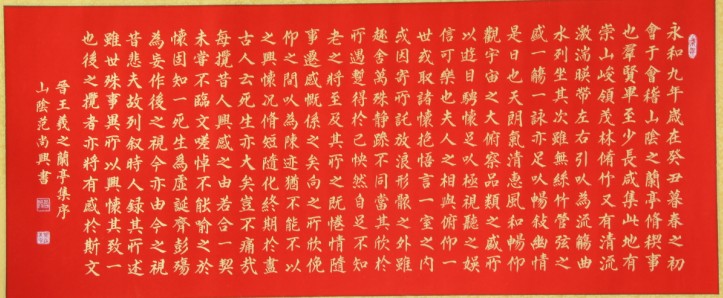 永和九年歲在癸丑暮春之初
會于會稽山陰之蘭亭脩禊事
也羣賢畢至少長咸集此地有
崇山峻領茂林脩竹又有清流
激湍暎帶左右引以為流觴曲
水列坐其次雖無絲竹管弦之
盛一觴一詠亦足以暢敘幽情
是日也天朗氣清惠風和暢仰
觀宇宙之大俯察品類之盛所
以遊目騁懷足以極視聽之娛
信可樂也夫人之相與俯仰一
世或取諸懷抱悟言一室之內
或因寄所託放浪形骸之外雖
趣舍萬殊靜躁不同當其欣於
所遇暫得於己怏然自足不知
老之將至及其所之既惓情隨
事遷感慨係之矣向之所欣俛
仰之間以為陳迹猶不能不以
之興懷况脩短隨化終期於盡
古人云死生亦大矣豈不痛哉
每攬昔人興感之由若合一契
未嘗不臨文嗟悼不能喻之於
懷固知一死生為虛誕齊彭殤
為妄作後之視今亦由今之視
昔悲夫故列敘時人錄其所述
雖世殊事異所以興懷其致一
也後之攬者亦將有感於斯文
晉王羲之蘭亭集序
山陰范尚興書